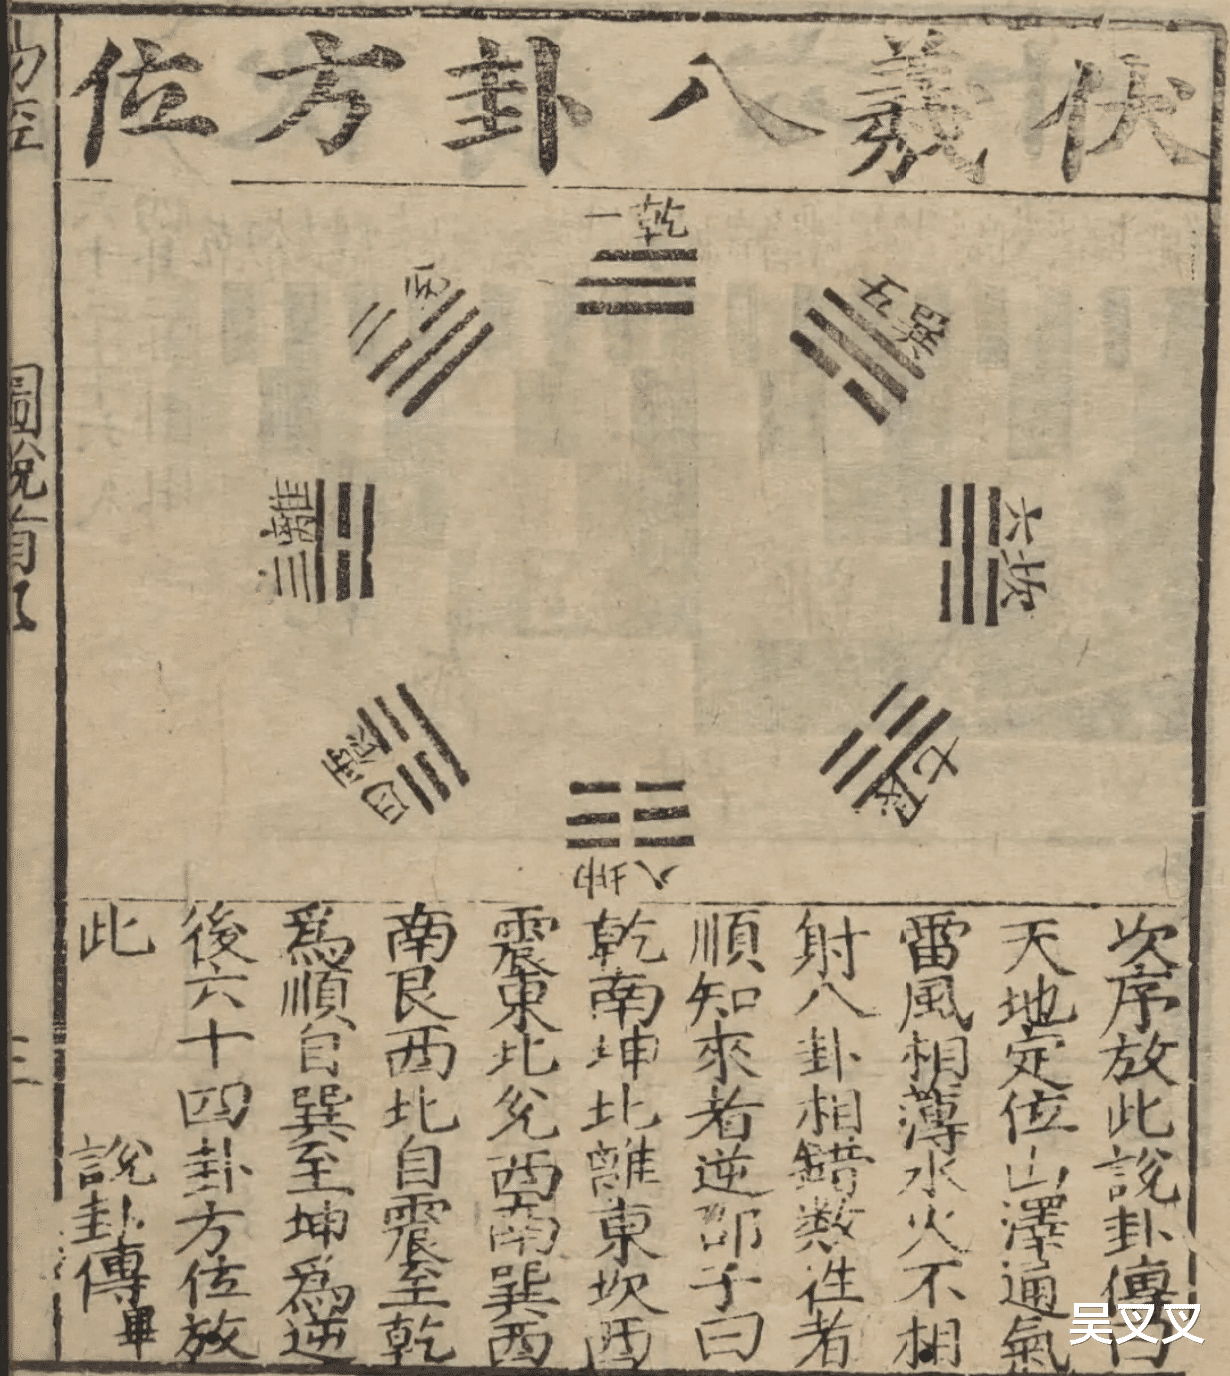 伏羲八卦方位
乾一
兌二
離三
震四
巽五
坎六
艮七
坤八
次序放此說卦傳曰
天地定位山澤通氣
雷風相薄水火不相
射八卦相錯數往者
順知來者逆邵子曰
乾南坤北離東坎西
震東北兌西南巽西
南艮西北自震至乾
爲順自巽至坤爲逆
後六十四卦方位放
此 說卦傳畢
易經 圖說首 三
吴叉叉